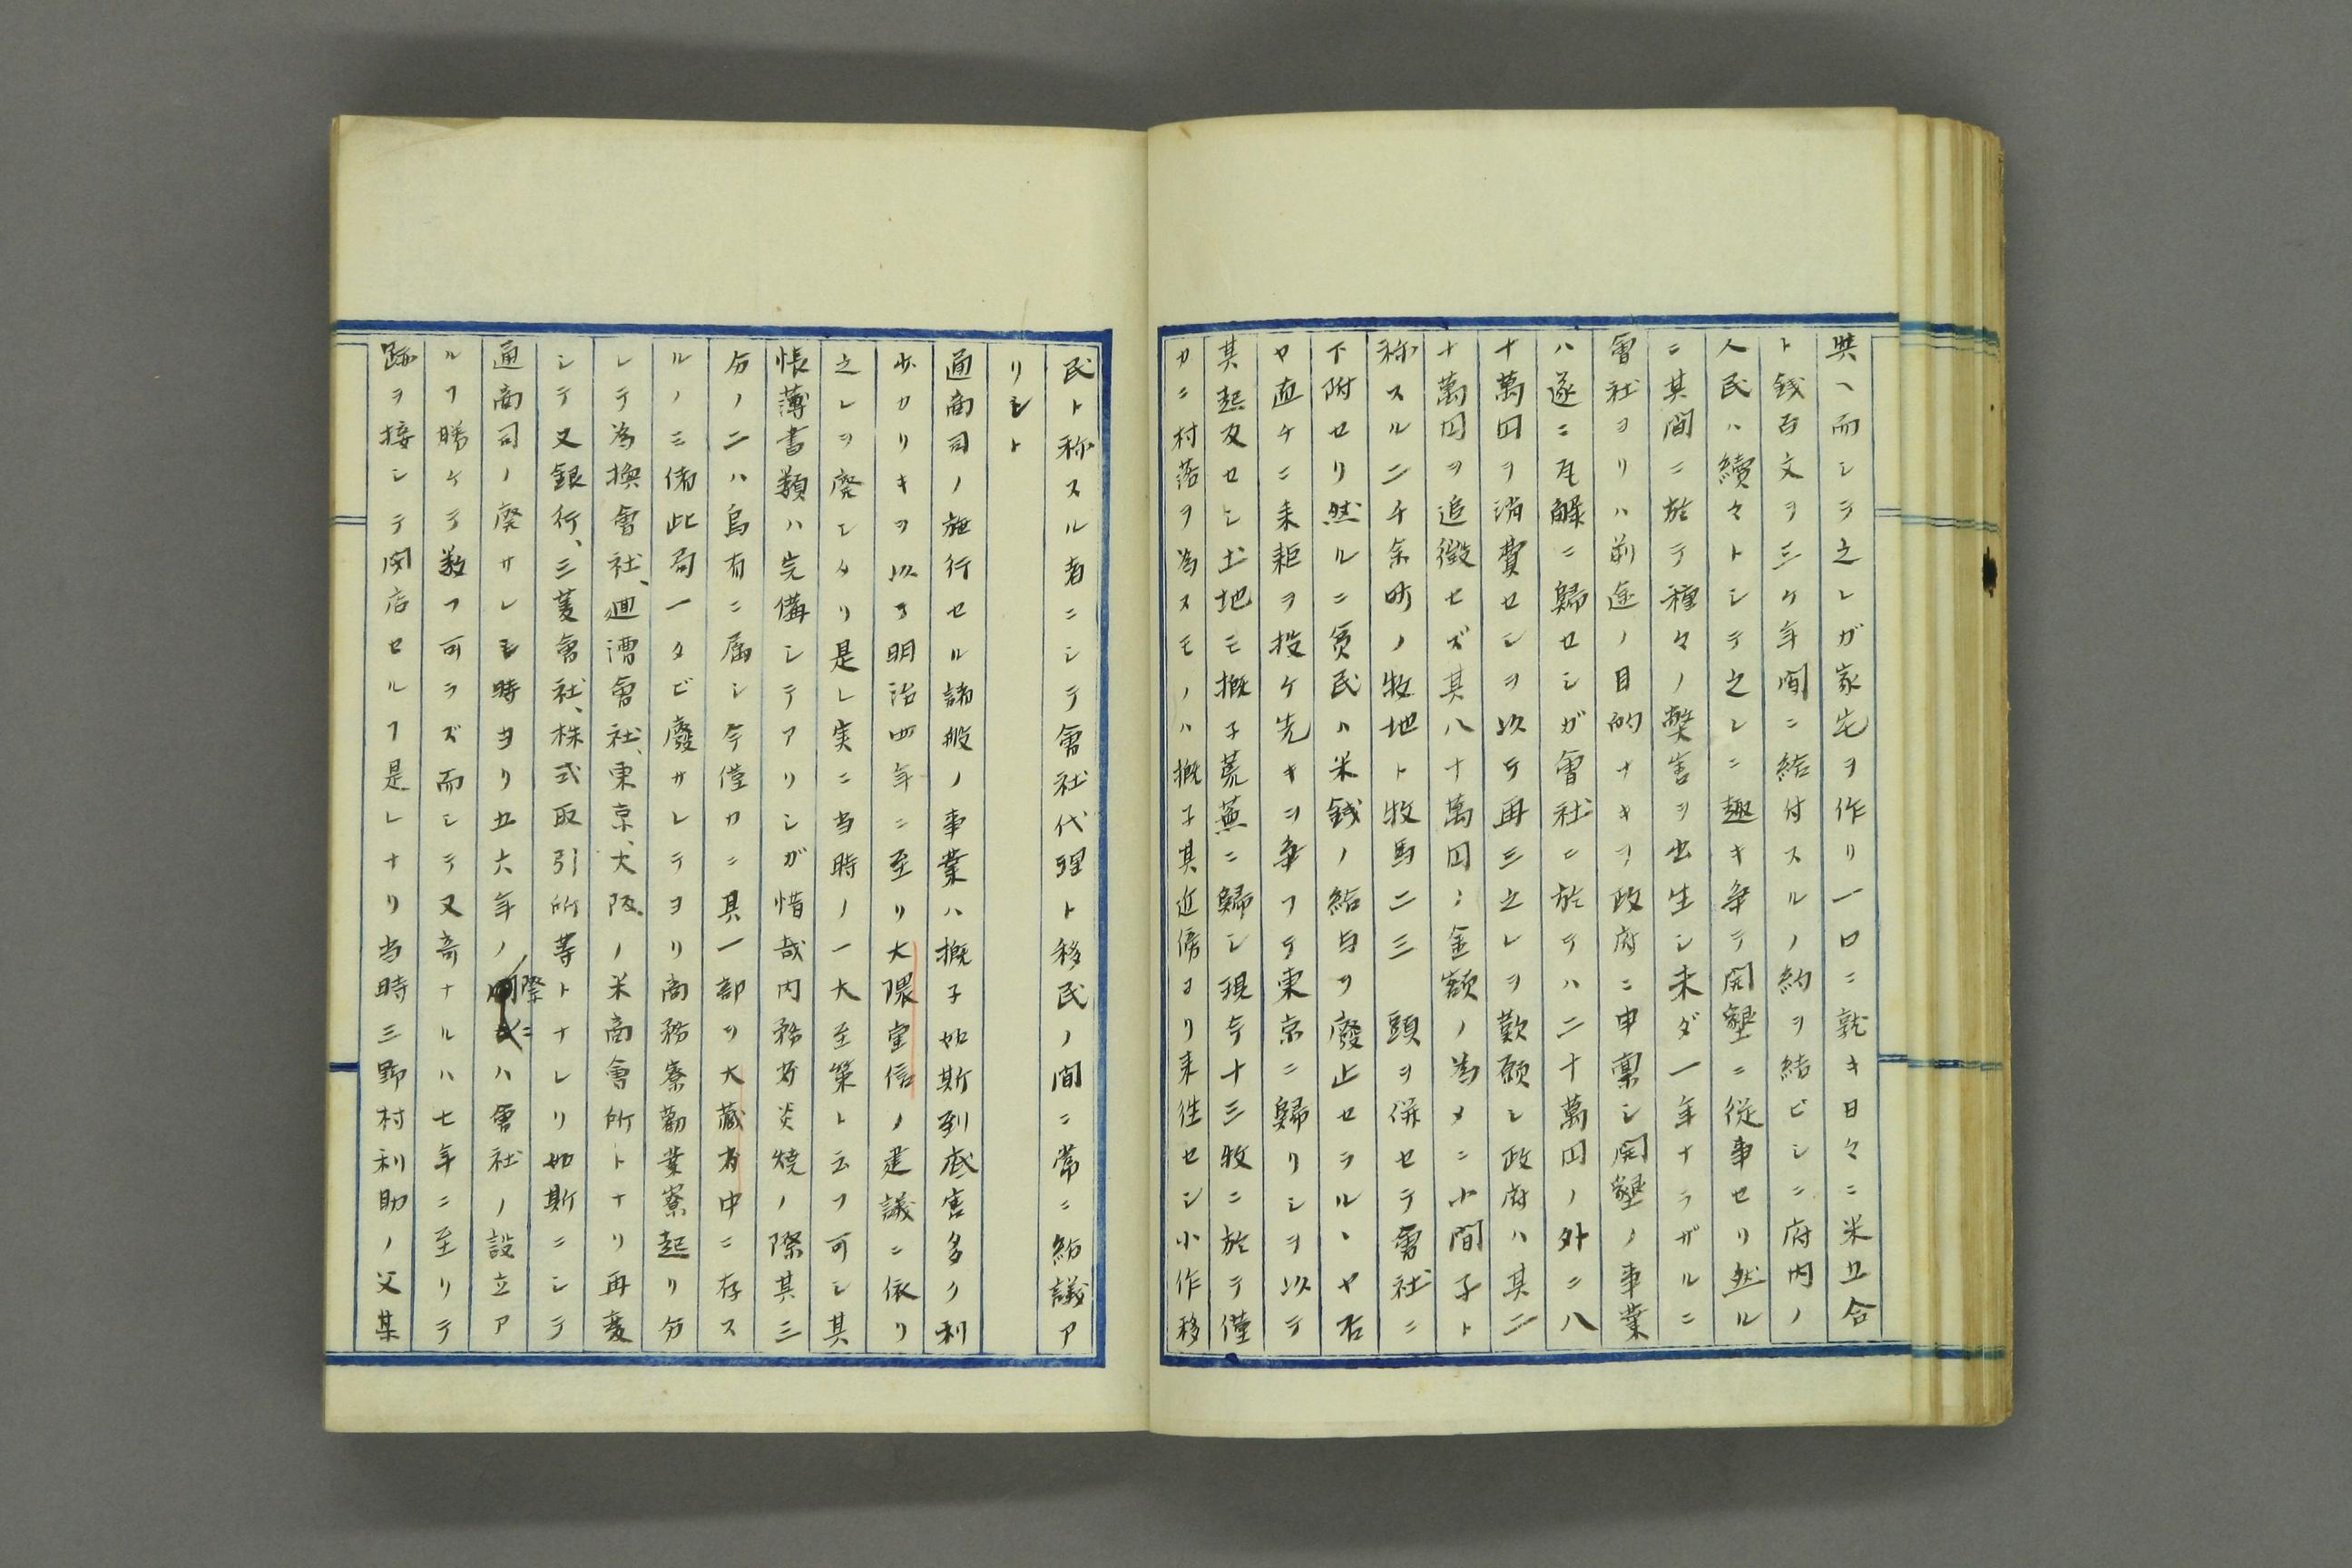 與ヘ而シテ之レガ家宅ヲ作リ一口ニ就キ日々ニ米五合
ト銭百文ヲ三ヶ年間ニ給付スルノ約ヲ結ビシニ府内ノ
人民ハ續々トシテ之レニ趣キ争テ開墾ニ従事セリ然ル
ニ其間ニ於テ種々ノ弊害ヲ出生シ未ダ一年ナラザルニ
會社ヨリハ前途ノ目的ナキヲ政府ニ申禀シ開墾ノ事業
ハ遂ニ瓦解ニ歸セシガ會社ニ於テハ二十萬円ノ外ニ八
十萬円ヲ消費セシヲ以テ再三之レヲ歎願シ政府ハ其二
十萬円ヲ追徴セズ其八十萬円ノ金額ノ為メニ小間子ト
称スル二千余町ノ牧地ト牧馬二三頭ヲ併セテ會社ニ
下附セリ然ルニ貧民ハ米銭ノ給与ヲ廢止セラルヽヤ否
ヤ直ケニ耒耟ヲ投ケ先キヲ争フテ東京ニ歸リシヲ以テ
其起及セシ土地モ概子荒蕪ニ歸シ現今十三牧ニ於テ僅
カニ村落ヲ為スモノハ概子其近傍ヨリ来往セシ小作移
民ト称スル者ニシテ會社代理ト移民ノ間ニ常ニ紛議ア
リシト
通商司ノ施行セル諸般ノ事業ハ概子如斯到底害多ク利
少カリキヲ以テ明治四年ニ至リ大隈重信ノ建議ニ依リ
之レヲ廃シタリ是レ実ニ当時ノ一大至策ト云フ可シ其
帳薄書類ハ完備シテアリシガ惜哉内務省炎燒ノ際其三
分ノ二ハ烏有ニ屬シ今僅カニ其一部ヲ大蔵省中ニ存ス
ルノミ偖此局一タビ廢サレテヨリ商務寮勸業寮起リ分
レテ為換會社、廻漕會社、東京、大阪ノ米商會所トナリ再変
シテ又銀行、三菱會社、株式取引所等トナレリ如斯ニシテ
通商司ノ廃サレシ時ヨリ五六年ノ際ニハ會社ノ設立ア
ルフ勝ケテ数フ可ラズ而シテ又竒ナルハ七年ニ至リテ
踵ヲ接シテ閉店セルフ是レナリ当時三野村利助ノ父某